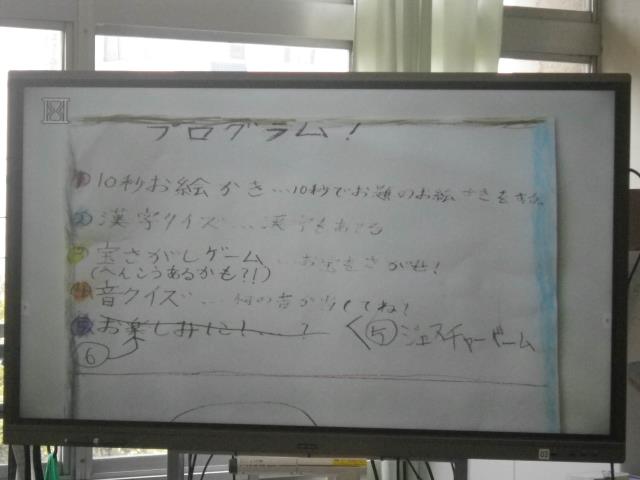 プログラム!
① 10秒お絵かき…10秒でお題のお絵かきをする
② 漢字クイズ…漢字をあてる
③ 宝さがしゲーム…お宝をさがせ!
(へんこうあるかも?!)
④ 音クイズ…何の音か当ててね!
⑤ お楽しみに!…? <⑤ジェスチャーゲーム
⑥